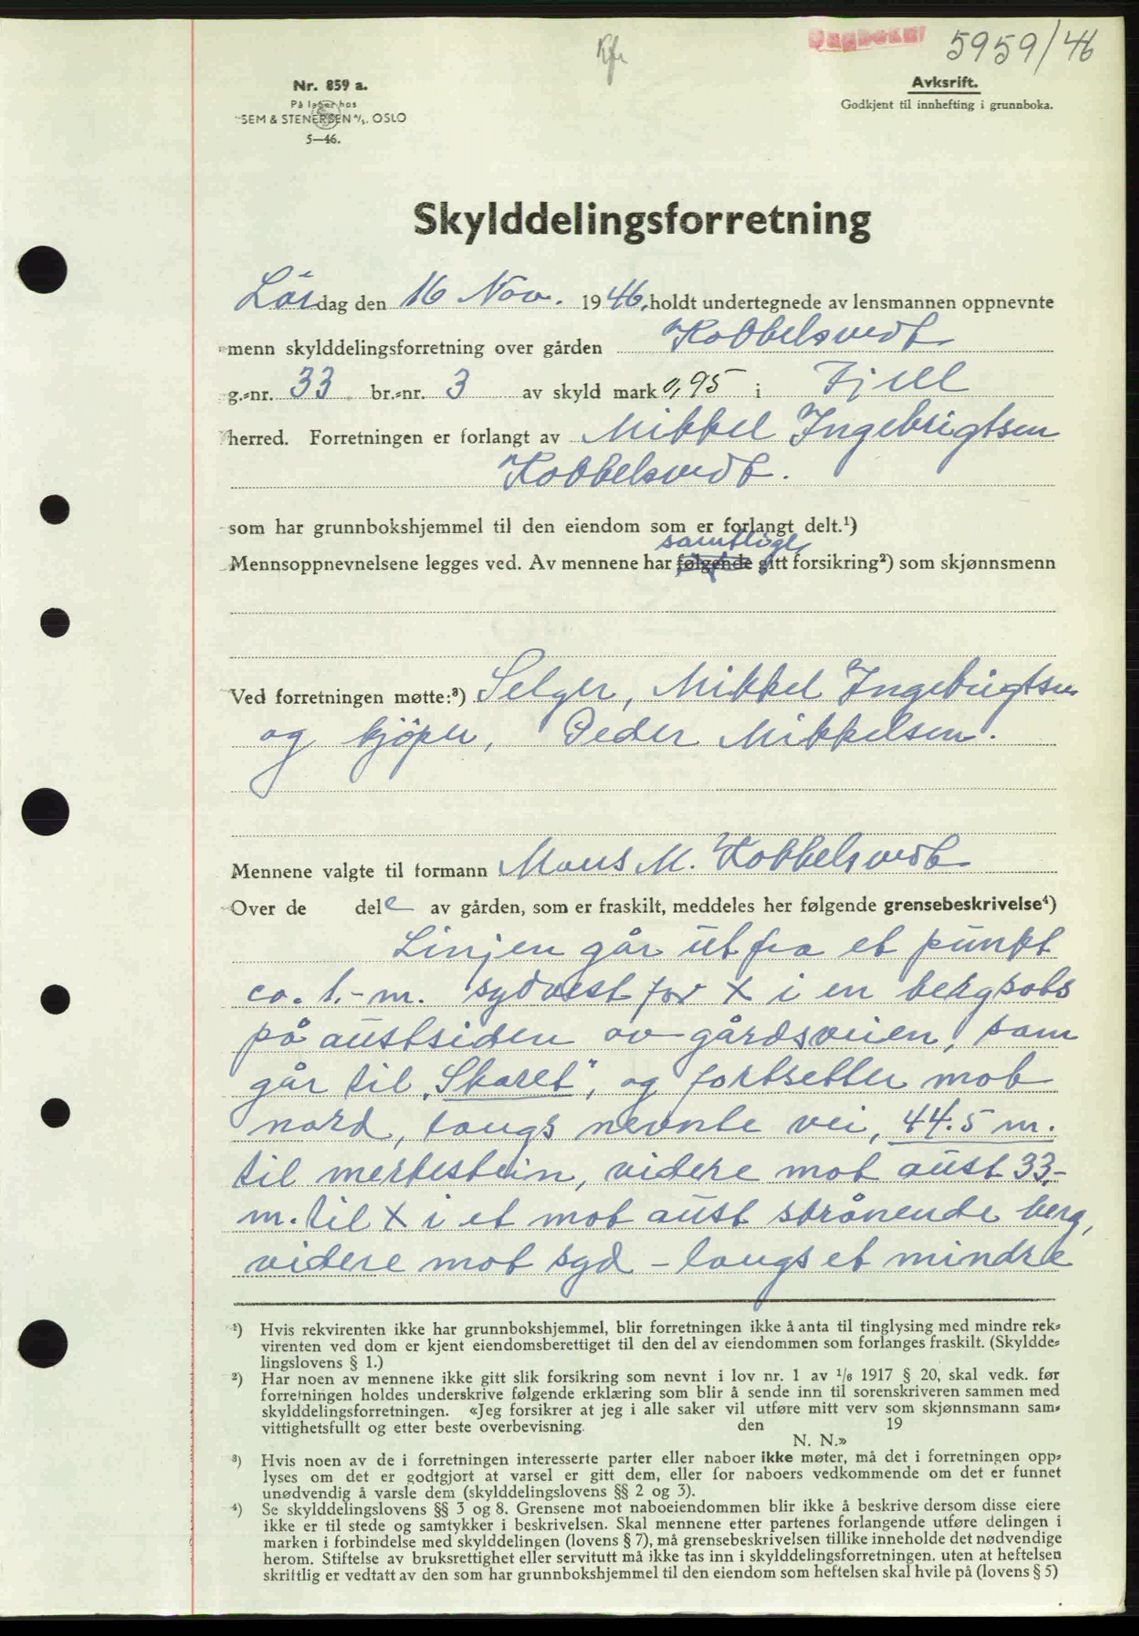 Dagboknr 5959/46
Kfr
Nr. 859 a.
På lager hos
SEM & STENERSEN A/S, OSLO
5—46.
Avksrift.
Godkjent til innhefting i grunnboka.
Skylddelingsforretning
Lördag den 16 Nov. 1946, holdt undertegnede av lensmannen oppnevnte
menn skylddelingsforretning over gården Kobbelsvedt
g.-nr. 33 br.-nr. 3 av skyld mark 0,95 i Fjell
herred. Forretningen er forlangt av Mikkel Ingebrigtsen
Kobbelsvedt.
som har grunnbokshjemmel til den eiendom som er forlangt delt.¹)
samtlige
Mennsoppnevnelsene legges ved. Av mennene har følgende gitt forsikring²) som skjønnsmenn
Ved forretningen møtte:³) Selger, Mikkel Ingebrigtsen
og kjöper, Peder Mikkelsen.
Mennene valgte til formann Mons M. Kobbelsvedt
Over de dele av gården, som er fraskilt, meddeles her følgende grensebeskrivelse⁴)
Linjen går ut fra et punkt
ca. 1.-m. sydvest for X i en bergpots
på austsiden av gårdsveien, som
går til „Skaret", og fortsetter mot
nord, langs nevnte vei, 44.5 m.
til merkestein, videre mot aust 33,-
m. til X i et mot aust strånende berg,
videre mot syd - langs et mindre
¹) Hvis rekvirenten ikke har grunnbokshjemmel, blir forretningen ikke å anta til tinglysing med mindre rek-
virenten ved dom er kjent eiendomsberettiget til den del av eiendommen som forlanges fraskilt. (Skyldde-
lingslovens § 1.)
²) Har noen av mennene ikke gitt slik forsikring som nevnt i lov nr. 1 av 1/6 1917 § 20, skal vedk. før
forretningen holdes underskrive følgende erklæring som blir å sende inn til sorenskriveren sammen med
skylddelingsforretningen. «Jeg forsikrer at jeg i alle saker vil utføre mitt verv som skjønnsmann sam-
vittighetsfullt og etter beste overbevisning. den 19
N. N.»
³) Hvis noen av de i forretningen interesserte parter eller naboer ikke møter, må det i forretningen opp-
lyses om det er godtgjort at varsel er gitt dem, eller for naboers vedkommende om det er funnet
unødvendig å varsle dem (skylddelingslovens §§ 2 og 3).
⁴) Se skylddelingslovens §§ 3 og 8. Grensene mot naboeiendommen blir ikke å beskrive dersom disse eiere
ikke er til stede og samtykker i beskrivelsen. Skal mennene etter partenes forlangende utføre delingen i
marken i forbindelse med skylddelingen (lovens § 7), må grensebeskrivelsen tillike inneholde det nødvendige
herom. Stiftelse av bruksrettighet eller servitutt må ikke tas inn i skylddelingsforretningen, uten at heftelsen
skriftlig er vedtatt av den som har grunnbokshjemmel til den eiendom som heftelsen skal hvile på (lovens § 5)